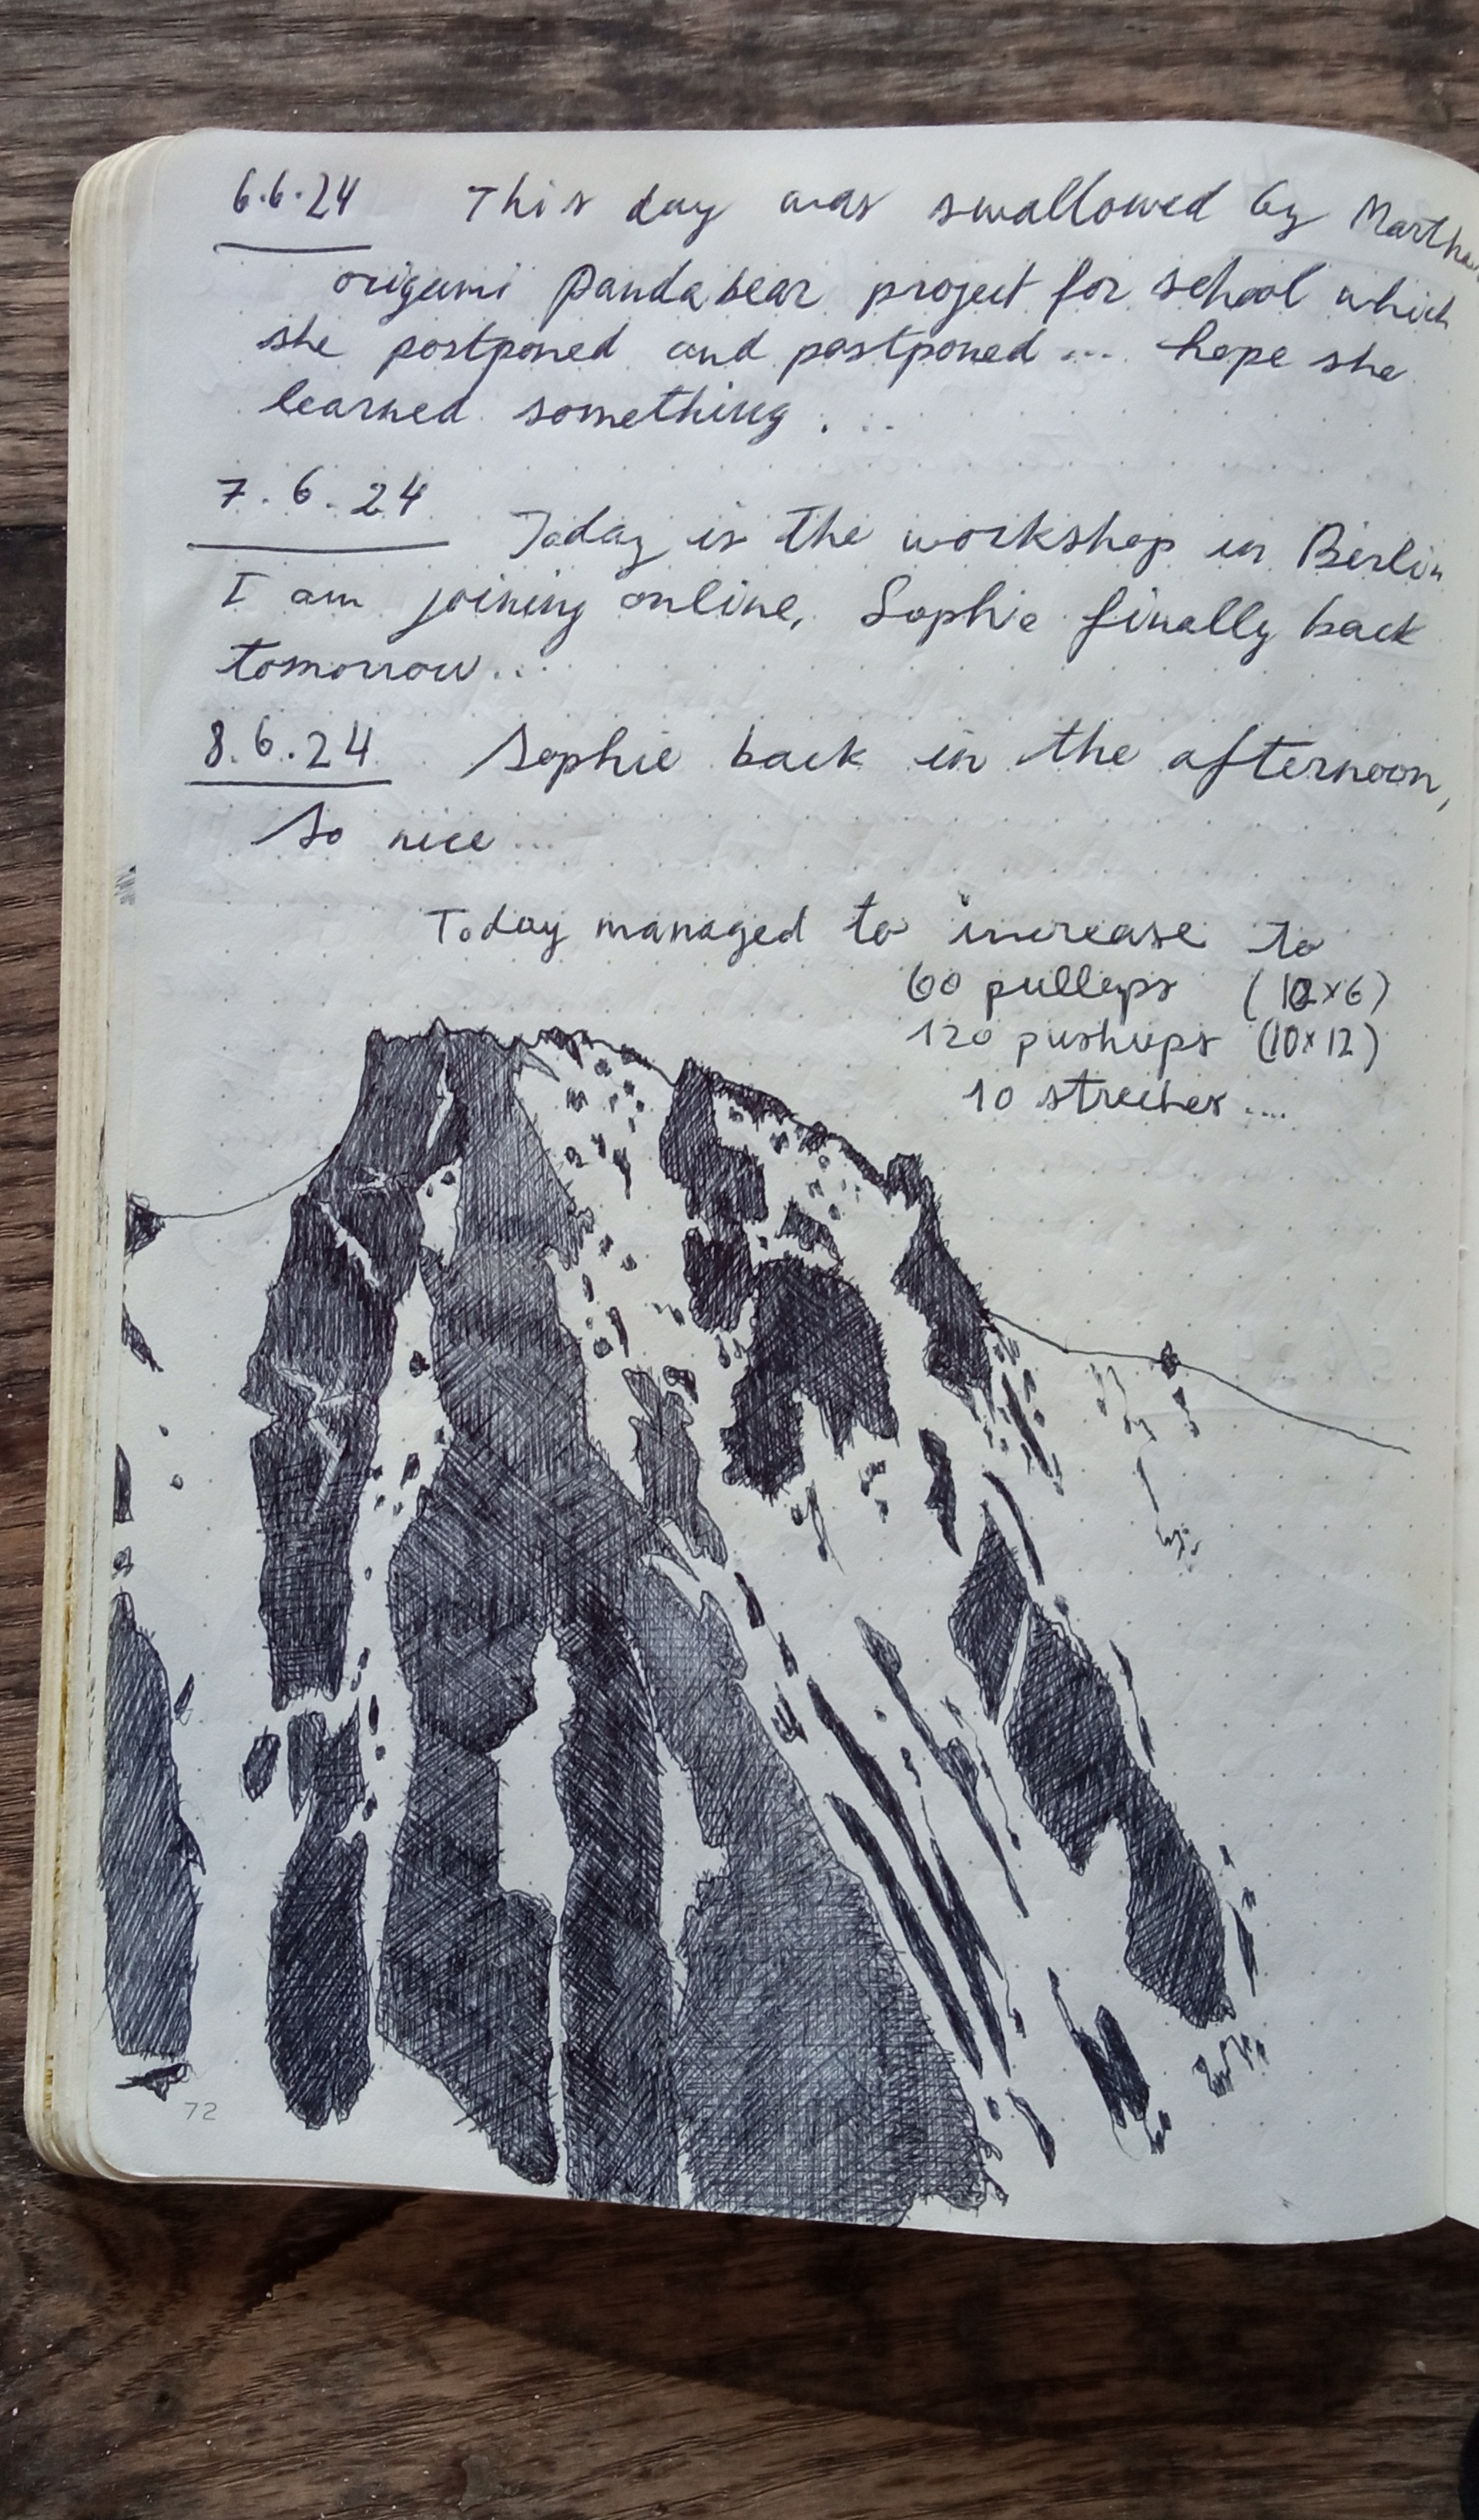 6.6.24 This day was swallowed by Martha
origami Panda bear project for school which
she postponed and postponed ... hope she
learned something ...
7.6.24 Today is the workshop in Berlin
I am joining online, Sophie finally back
tomorrow...
8.6.24 Sophie back in the afternoon,
so nice ...
Today managed to increase to
60 pullups (10x6)
120 pushups (10x12)
10 streches ....
72